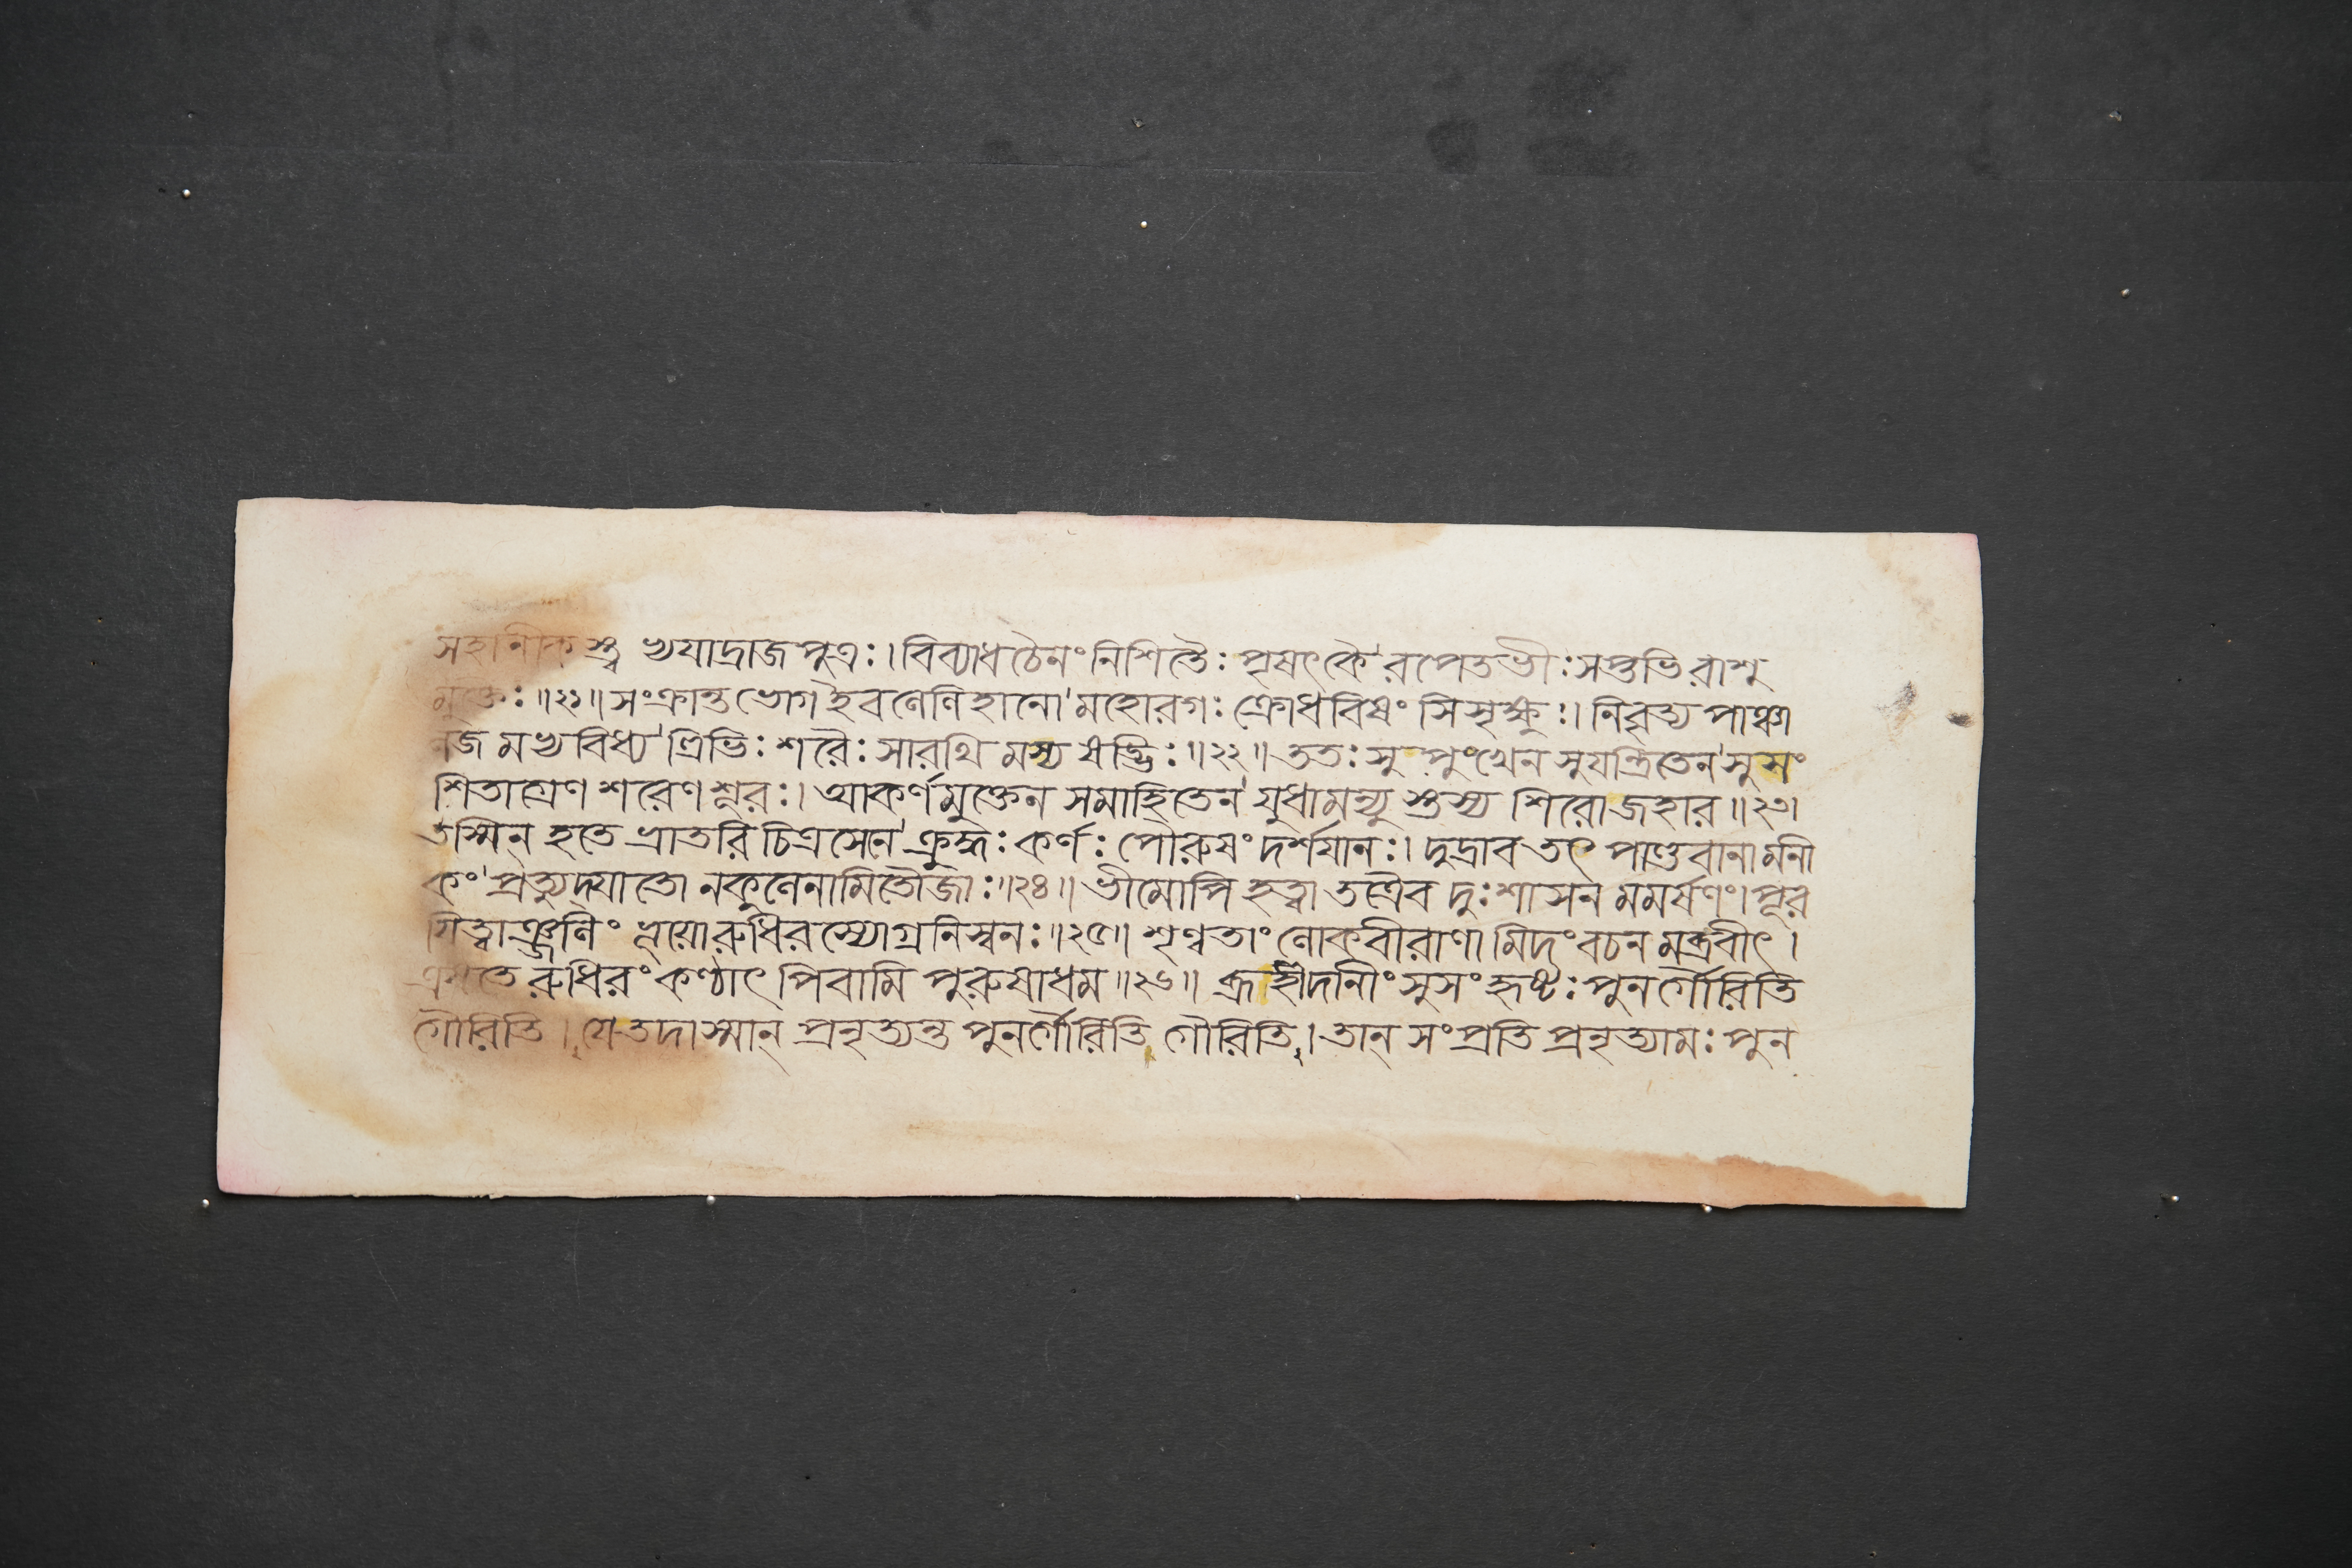 সহানীকস্ত্ব খযাদ্রাজপুত্রঃ।বিব্যাধচৈনং নিশিতৈঃ পৃষৎকৈ'রপেতভীঃসপ্তভিরাশু
মুক্তৈঃ॥২১॥সংক্রান্তভোগইবণেণিহানো'মহোরগঃ ক্রোধবিষং সিসৃক্ষুঃ। নিবৃত্য পাঞ্চা
নজ মখ্যবিধ্য'ত্ত্রিভিঃ শরৈঃ সারথি মস্য ষড্ভিঃ॥২২॥ ততঃ সুপুংখেন সুযন্ত্রিতেন'সুসং
শিতাগ্রেণ শরেণ শূরঃ। আকর্ণমুক্তেন সমাহিতেন'যুধামন্যু স্তস্য শিরোজহার॥২৩।
তস্মিন্ হতে ভ্রাতরি চিত্রসেনে'ক্রুদ্ধঃ কর্ণঃ পৌরুষং দর্শযানঃ। দুদ্রাব তৎ পাণ্ডবানামনী
কং'প্রত্যুদ্যাতো নকুণেনামিতৌজাঃ॥২৪॥ ভীমোপি হত্বা তত্রৈব দুঃশাসন মমর্ষণং।পূর
যিত্বাঞ্জণিং ভূয়োরুধিরস্যোগ্রনিস্বনঃ॥২৫॥ শৃণ্বতাং ণোকবীরাণা মিদং বচন মব্রবীৎ।
এষতে রুধিরং কণ্ঠাৎ পিবামি পুরুষাধম॥২৬॥ ব্রূহীদানীং সুসংহৃষ্টঃ পুনর্গৌরিতি
গৌরিতি। যে তদাস্মান্ প্রনৃত্যন্ত পুনর্গৌরিতি গৌরিতি।তান্ সংপ্রতি প্রনৃত্যামঃ পুন